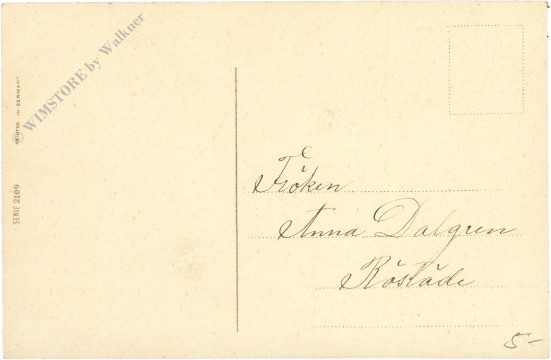 © WIMSTORE by Walkner
PRINTED IN GERMANY
SERIE 2109
Fröken
Anna Dalgren
Röskäde
5-